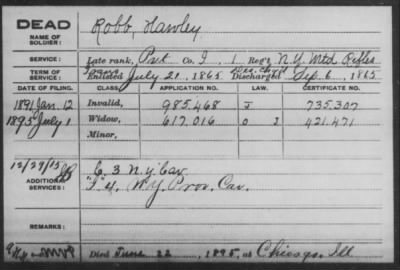 DEAD
NAME OF SOLDIER:
Robb, Hawley
SERVICE:
Late rank, Pvt Co. I, 1 Reg't N.Y. Mtd Rifles
TERM OF SERVICE:
Enlisted July 21, 1865 Discharged Sep. 6, 1865
DATE OF FILING. CLASS. APPLICATION NO. LAW. CERTIFICATE NO.
1891 Jan. 12 Invalid, 985.468 J 735.307
1895 July 1 Widow, 617.016 O 2 421.471
Minor,
12/29/15
ADDITIONAL SERVICES:
C. 3 N.Y. Cav
"I" 4, N.Y. Prov. Cav.
REMARKS:
Died June 22, 1895, at Chicago, Ill